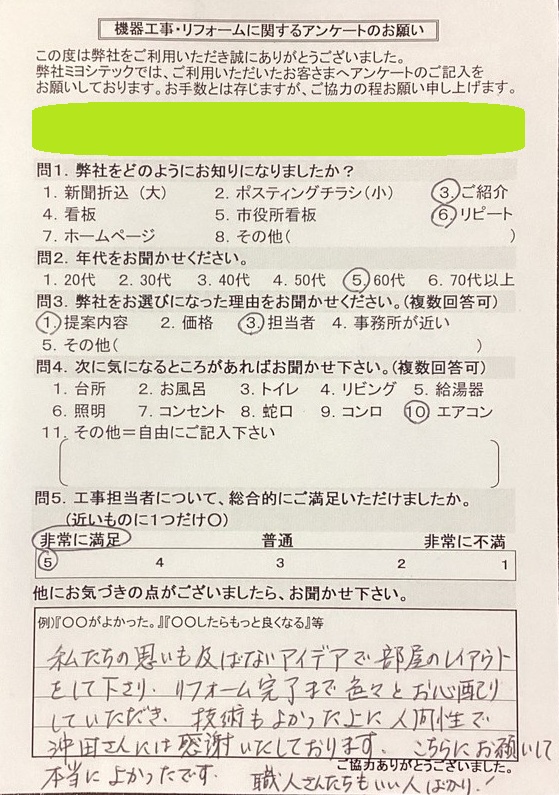 機器工事・リフォームに関するアンケートのお願い
この度は弊社をご利用いただき誠にありがとうございました。
弊社ミヨシテックでは、ご利用いただいたお客さまへアンケートのご記入を
お願いしております。お手数とは存じますが、ご協力の程お願い申し上げます。
問1. 弊社をどのようにお知りになりましたか？
1. 新聞折込（大） 2. ポスティングチラシ（小） 3. ご紹介
4. 看板 5. 市役所看板 6. リピート
7. ホームページ 8. その他( )
問2. 年代をお聞かせください。
1. 20代 2. 30代 3. 40代 4. 50代 5. 60代 6. 70代以上
問3. 弊社をお選びになった理由をお聞かせください。(複数回答可)
1. 提案内容 2. 価格 3. 担当者 4. 事務所が近い
5. その他( )
問4. 次に気になるところがあればお聞かせ下さい。(複数回答可)
1. 台所 2. お風呂 3. トイレ 4. リビング 5. 給湯器
6. 照明 7. コンセント 8. 蛇口 9. コンロ 10 エアコン
11. その他＝自由にご記入下さい
問5. 工事担当者について、総合的にご満足いただけましたか。
(近いものに1つだけ〇)
非常に満足 普通 非常に不満
5 4 3 2 1
他にお気づきの点がございましたら、お聞かせ下さい。
例)『〇〇がよかった。』『〇〇したらもっと良くなる』等
私たちの思いも及ばないアイデアで部屋のレイアウト
をして下さり、リフォーム完了まで色々とお心配り
していただき、技術もよかった上に人間性で
沖田さんには感謝いたしております。こちらにお願いして
ご協力ありがとうございました。
本当によかったです。 職人さんたちもいい人ばかり！